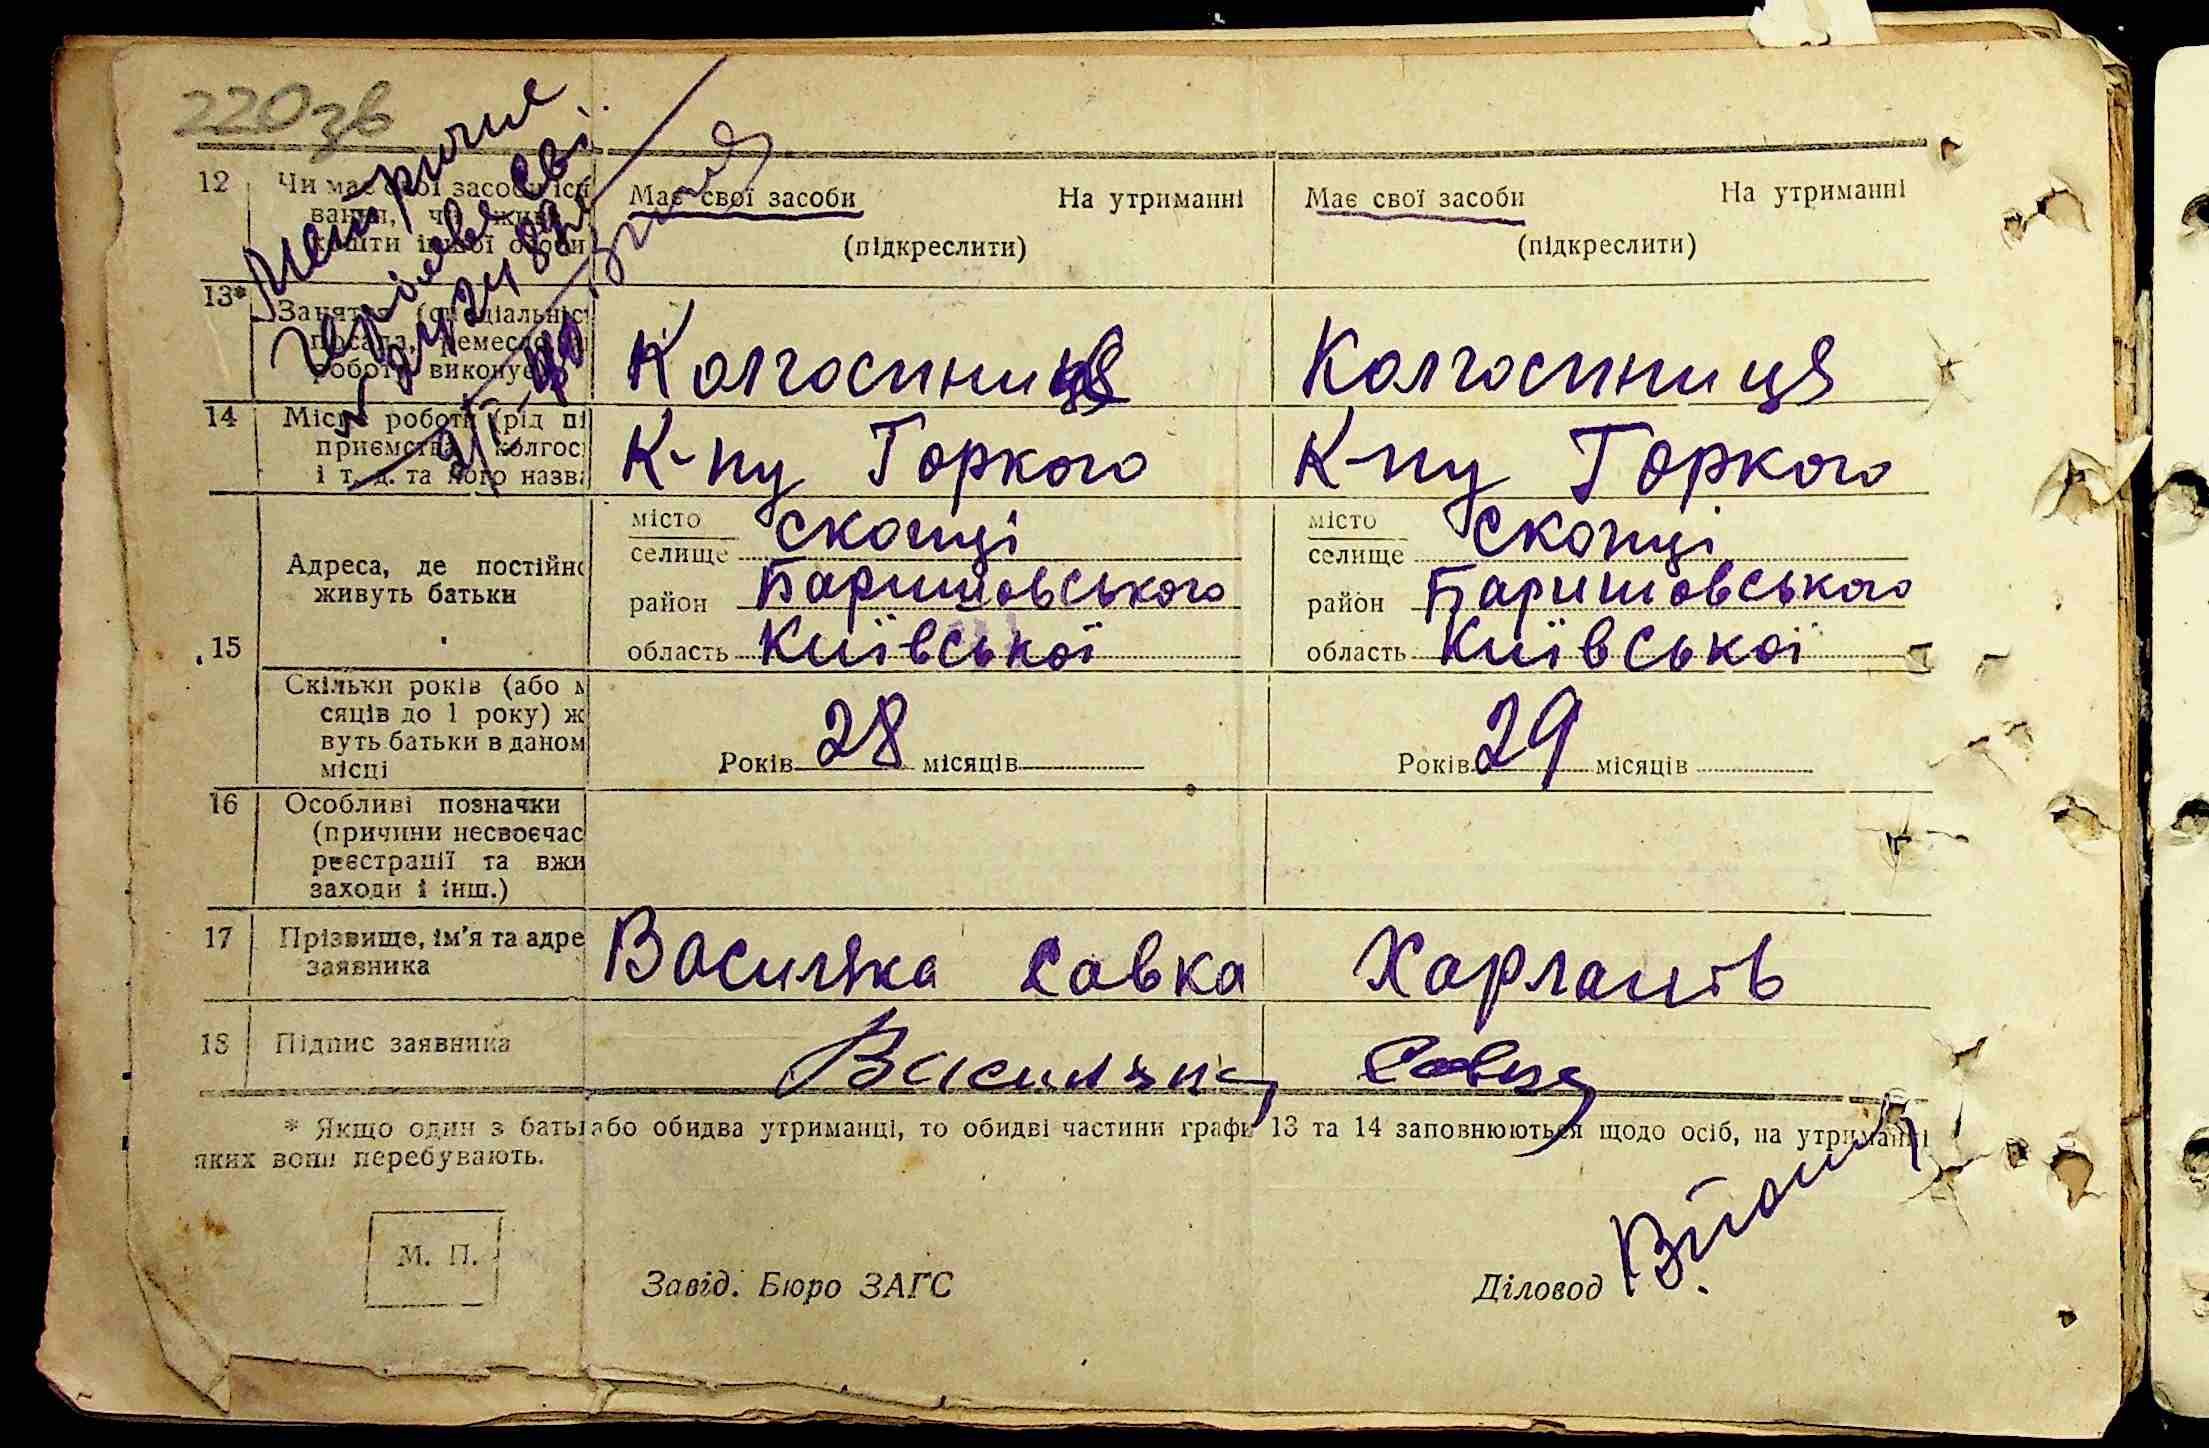 220зв
12 Чи має свої засоби існ Має свої засоби На утриманні Має свої засоби На утриманні
вання, чи живе
кошти іншої особи (підкреслити) (підкреслити)
13* Заняття (спеціальніс
посада, ремесло
робота виконує Колгоспниця Колгоспниця
14 Місце роботи (рід пі
приємства, колгос К-пу Горкого К-пу Горкого
і т. д. та його назва
місто місто
селище Скопці селище Скопці
Адреса, де постійно
живуть батьки район Баришовського район Баришовського
15 область Київської область Київської
Скільки років (або м
сяців до 1 року) ж
вуть батьки в даном
місці Років 28 місяців Років 29 місяців
16 Особливі позначки
(причини несвоєчас
реєстрації та вжи
заходи і інш.)
17 Прізвище, ім'я та адре Василяка Савка Харлампів
заявника
18 Підпис заявника Василяка Савка
* Якщо один з батьк або обидва утриманці, то обидві частини графи 13 та 14 заповнюються щодо осіб, на утриманні
яких вони перебувають.
М. П.
Завід. Бюро ЗАГС Діловод
Метричне
свід.